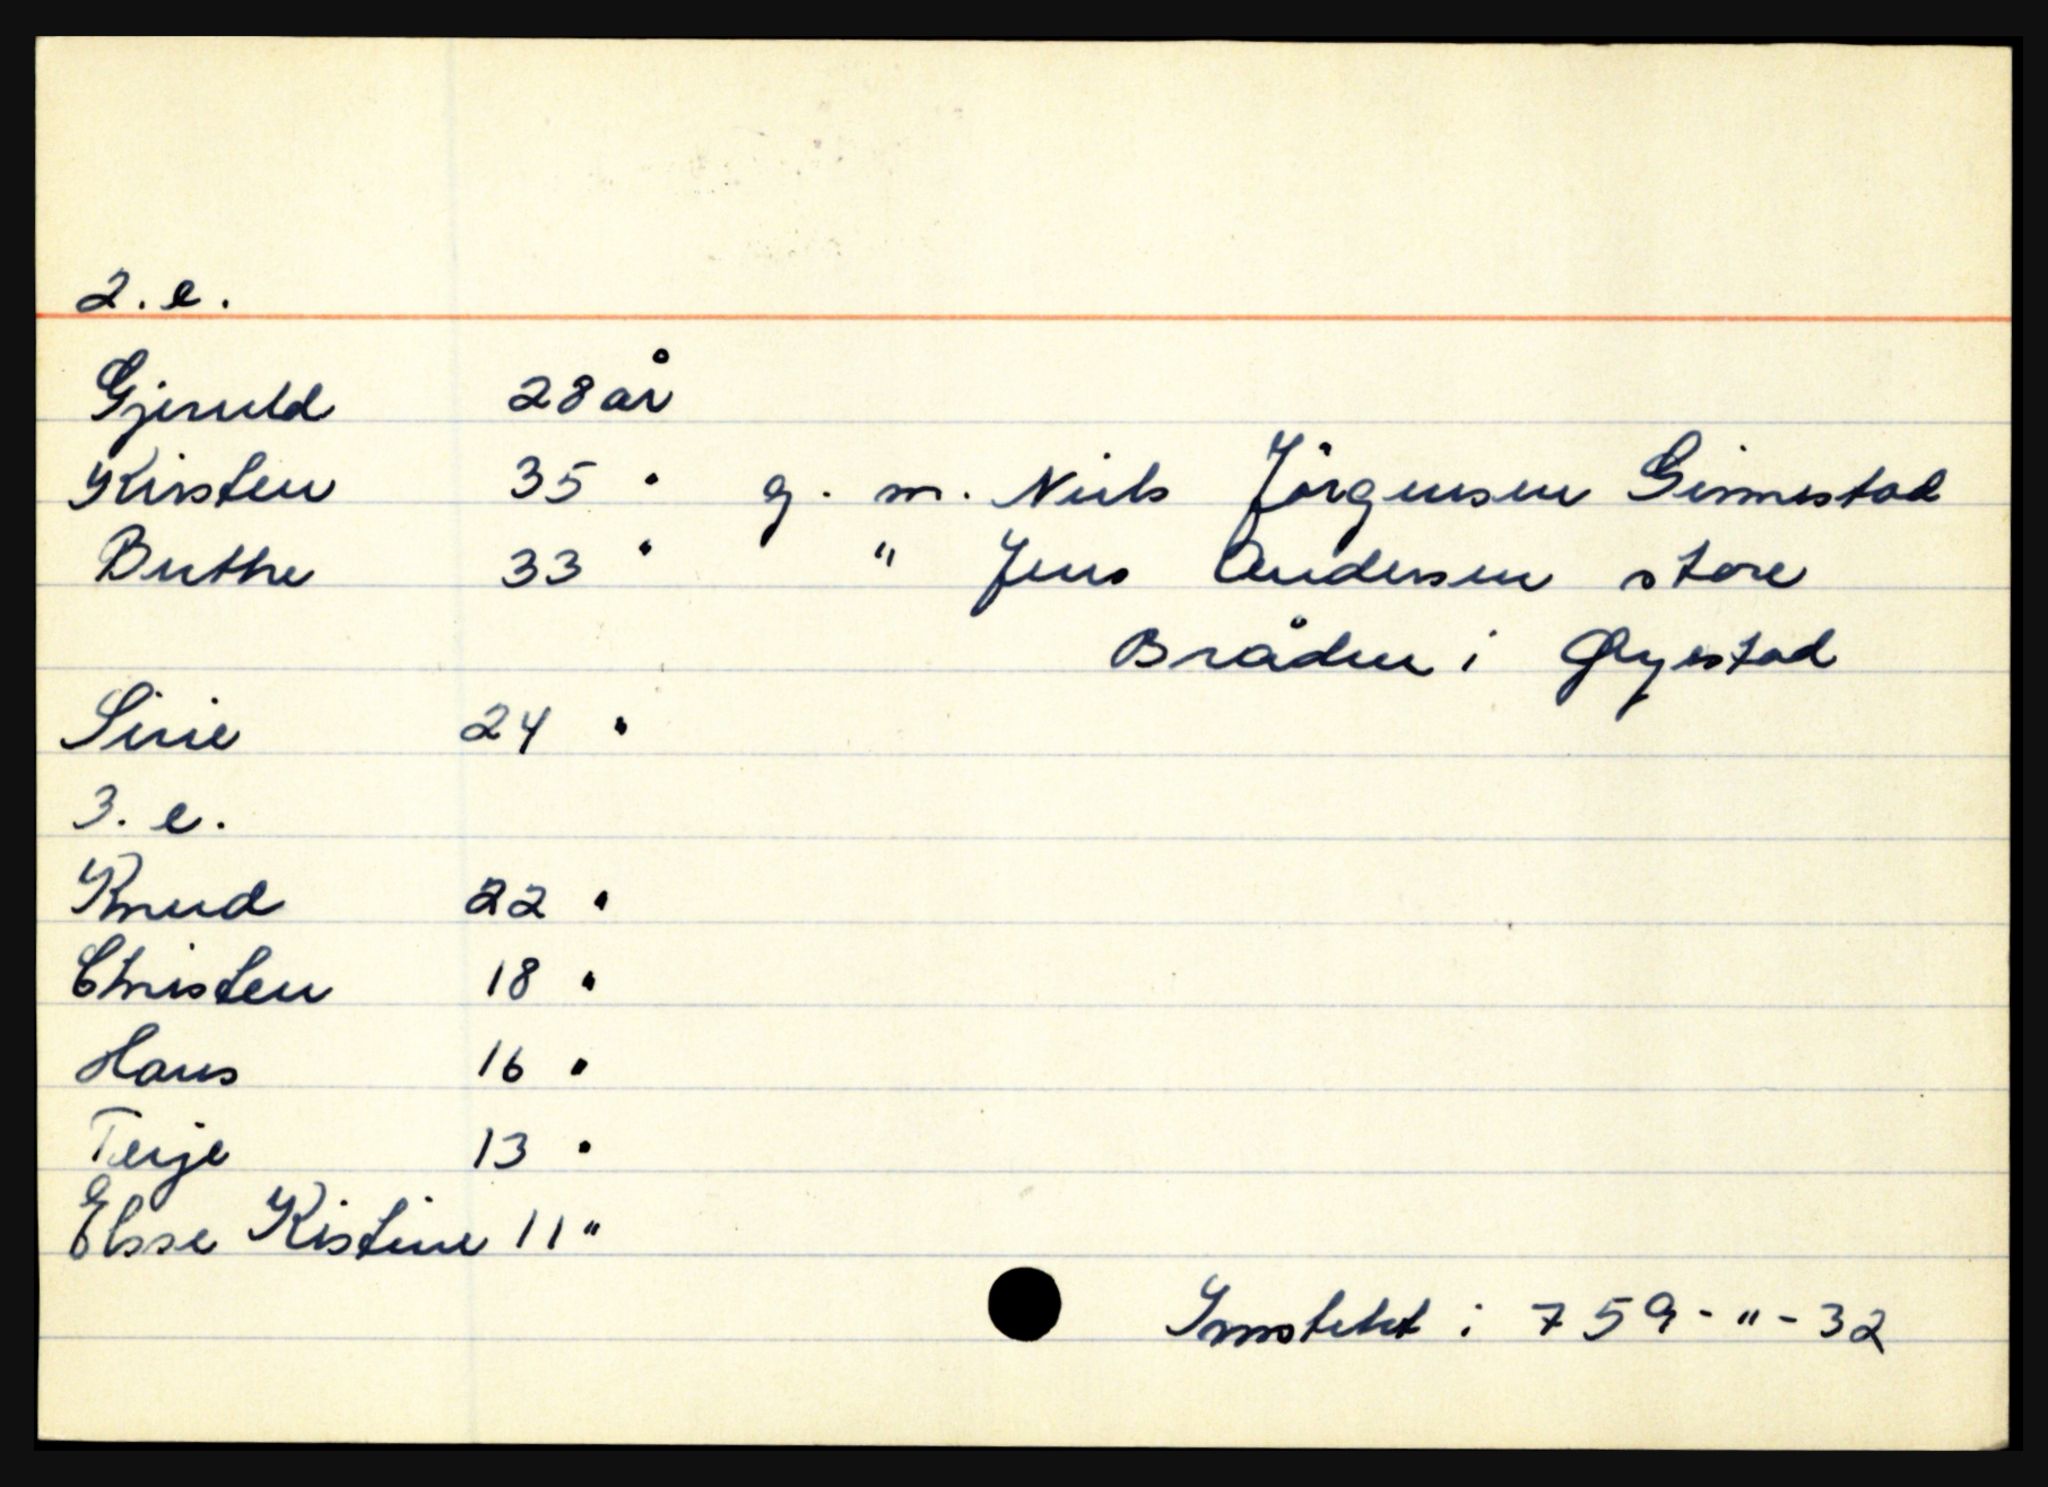 2. e.
Gjeruld 28 år
Kirsten 35 " g. m. Niels Jörgensen Gimmestad
Birthe 33 " " Jens Andersen store
Bråden i Øyestad
Sirie 24 "
3. e.
Knud 22 "
Christen 18 "
Hans 16 "
Terje 13 "
Elsse Kistine 11 "
i 759 - " - 32